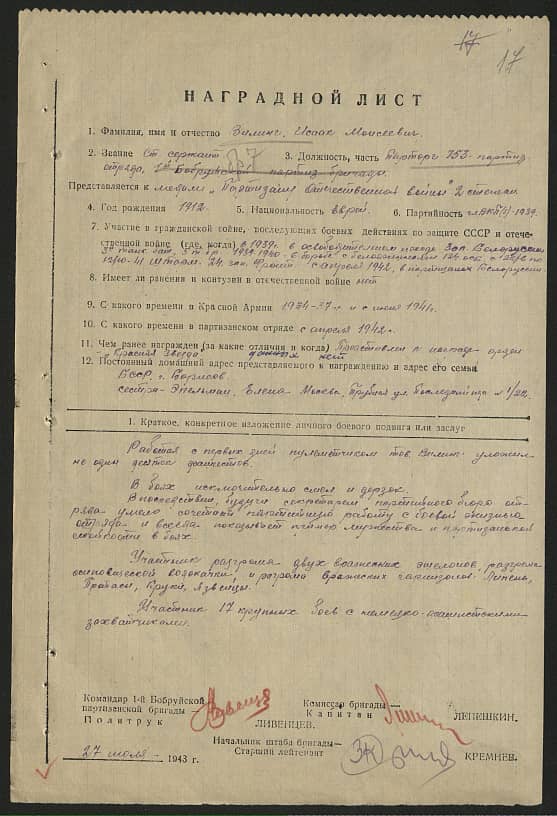 17
17
НАГРАДНОЙ ЛИСТ
1. Фамилия, имя и отчество Зилинг, Исаак Моисеевич.
2. Звание Ст сержант 3. Должность, часть Парторг 753 партиз.
отряда, Бобруйской партиз бригады.
Представляется к медали „Партизану Отечественной войны" 2 степени
4. Год рождения 1912. 5. Национальность еврей. 6. Партийность 1939.
7. Участие в гражданской войне, последующих боевых действиях по защите СССР и отече-
ственной войне (где, когда) в 1939г. в освободительном походе Зап. Белоруссии
с апреля 1942, в партизанах Белоруссии.
8. Имеет ли ранения и контузии в отечественной войне нет
9. С какого времени в Красной Армии 1934-37г и с июня 1941г.
10. С какого времени в партизанском отряде с апреля 1942г.
11. Чем ранее награжден (за какие отличия и когда) Представлен к награде орден
„Красная Звезда данных нет
12. Постоянный домашний адрес представляемого к награждению и адрес его семьи
БССР. г. Борисов.
сестра Елена Москва, Трубная ул.
1. Краткое, конкретное изложение личного боевого подвига или заслуг
Работая с первых дней пулеметчиком тов. Зилинг уложил
не один десяток фашистов.
В боях исключительно смел и дерзок.
Впоследствие, будучи секретарем партийного бюро от-
ряда умело сочетает партийную работу с боевой жизнью
отряда и всегда показывает пример мужества и партизанской
стойкости в боях.
Участник разгрома двух вражеских эшелонов, разгрома
осиповической водокачки, и разгрома вражеских гарнизонов: Липень,
Круки, Язвенцы.
Участник 17 крупных боев с немецко-фашистскими
захватчиками.
Командир 1-й Бобруйской
партизанской бригады —
Политрук ЛИВЕНЦЕВ.
Комиссар бригады—
Капитан ЛЕПЕШКИН.
Начальник штаба бригады—
Старший лейтенант КРЕМНЕВ.
27 июля 1943 г.